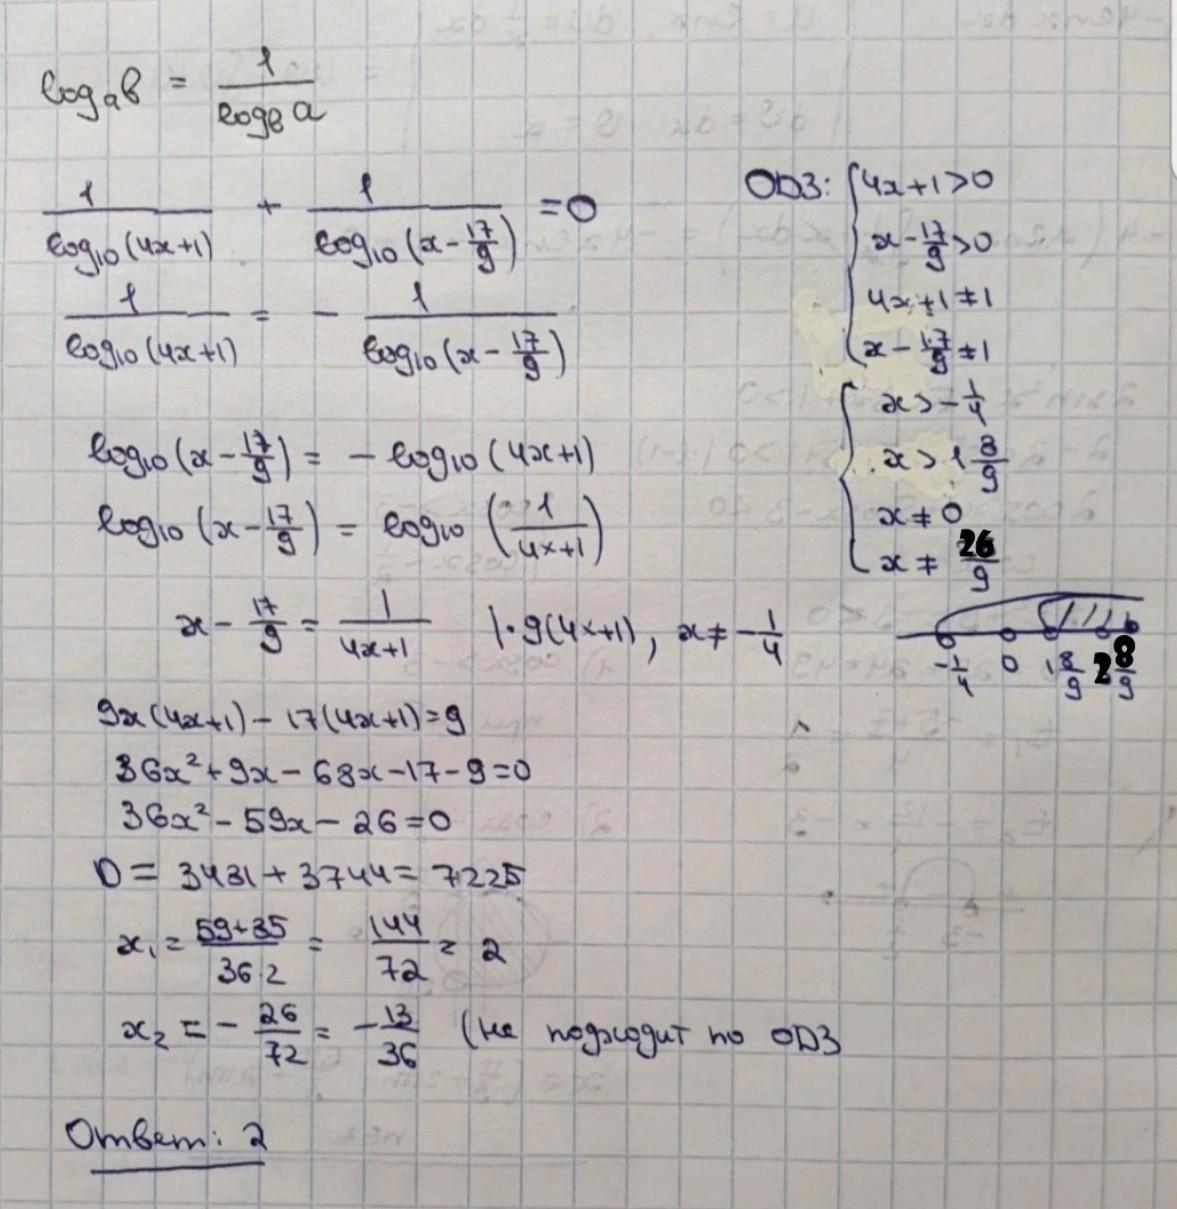 log_a b = 1/(log_b a)
1/(log₁₀(4x+1)) + 1/(log₁₀(x - 17/9)) = 0
1/(log₁₀(4x+1)) = - 1/(log₁₀(x - 17/9))
log₁₀(x - 17/9) = - log₁₀(4x+1)
log₁₀(x - 17/9) = log₁₀(1/(4x+1))
x - 17/9 = 1/(4x+1) |·9(4x+1), x ≠ -1/4
9x(4x+1) - 17(4x+1) = 9
36x² + 9x - 68x - 17 - 9 = 0
36x² - 59x - 26 = 0
D = 3481 + 3744 = 7225
x₁ = (59+85)/(36·2) = 144/72 = 2
x₂ = - 26/72 = - 13/36 (не подходит по ОДЗ
Ответ: 2
ОДЗ: { 4x+1>0
x - 17/9 >0
4x+1 ≠ 1
x - 17/9 ≠ 1
{ x > -1/4
x > 1 8/9
x ≠ 0
x ≠ 26/9
-1/4 0 1 8/9 2 8/9